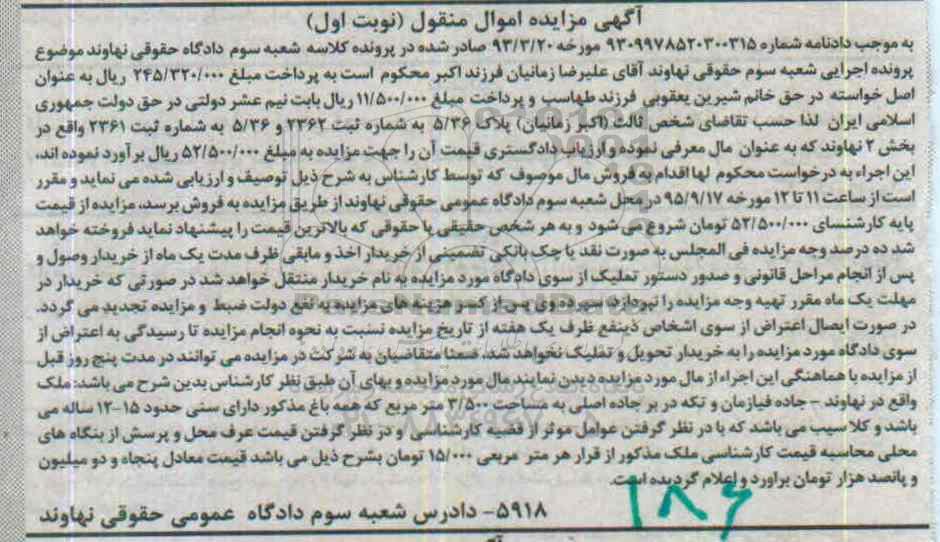 آگهی مزایده اموال منقول (نوبت اول)
به موجب دادنامه شماره ۹۳۰۹۹۷۸۵۲۰۳۰۰۳۱۵ مورخه ۹۳/۳/۲۰ صادر شده در پرونده کلاسه شعبه سوم دادگاه حقوقی نهاوند موضوع
پرونده اجرایی شعبه سوم حقوقی نهاوند آقای علیرضا زمانیان فرزند اکبر محکوم است به پرداخت مبلغ ۲۴۵/۳۲۰/۰۰۰ ریال به عنوان
اصل خواسته در حق خانم شیرین یعقوبی فرزند طهاسب و پرداخت مبلغ ۱۱/۵۰۰/۰۰۰ ریال بابت نیم عشر دولتی در حق دولت جمهوری
اسلامی ایران لذا حسب تقاضای شخص ثالث (اکبر زمانیان) پلاک ۵/۳۶ به شماره ثبت ۲۳۶۲ و ۵/۳۶ به شماره ثبت ۲۳۶۱ واقع در
بخش ۲ نهاوند که به عنوان مال معرفی نموده و ارزیاب دادگستری قیمت آن را جهت مزایده به مبلغ ۵۲/۵۰۰/۰۰۰ ریال برآورد نموده اند،
این اجراء به درخواست محکوم لها اقدام به فروش مال موصوف که توسط کارشناس به شرح ذیل توصیف و ارزیابی شده می نماید و مقرر
است از ساعت ۱۱ تا ۱۲ مورخه ۹۵/۹/۱۷ در محل شعبه سوم دادگاه عمومی حقوقی نهاوند از طریق مزایده به فروش برسد، مزایده از قیمت
پایه کارشنسای ۵۲/۵۰۰/۰۰۰ تومان شروع می شود و به هر شخص حقیقی یا حقوقی که بالاترین قیمت را پیشنهاد نماید فروخته خواهد
شد ده درصد وجه مزایده فی المجلس به صورت نقد یا چک بانکی تضمینی از خریدار اخذ و مابقی ظرف مدت یک ماه از خریدار وصول و
پس از انجام مراحل قانونی و صدور دستور تملیک از سوی دادگاه مورد مزایده به نام خریدار منتقل خواهد شد در صورتی که خریدار در
مهلت یک ماه مقرر تهیه وجه مزایده را نپردازد سپرده وی پس از کسر هزینه های مزایده به نفع دولت ضبط و مزایده تجدید می گردد.
در صورت ایصال اعتراض از سوی اشخاص ذینفع ظرف یک هفته از تاریخ مزایده نسبت به نحوه انجام مزایده تا رسیدگی به اعتراض از
سوی دادگاه مورد مزایده را به خریدار تحویل و تملیک نخواهد شد، ضمنا متقاضیان به شرکت در مزایده می توانند در مدت پنج روز قبل
از مزایده با هماهنگی این اجراء از مال مورد مزایده دیدن نمایند مال مورد مزایده و بهای آن طبق نظر کارشناس بدین شرح می باشد: ملک
واقع در نهاوند – جاده فیازمان و تکه در بر جاده اصلی به مساحت ۳/۵۰۰ متر مربع که همه باغ مذکور دارای سنی حدود ۱۵-۱۲ ساله می
باشد و کلا سیب می باشد که با در نظر گرفتن عوامل موثر از قضیه کارشناسی و در نظر گرفتن قیمت عرف محل و پرسش از بنگاه های
محلی محاسبه قیمت کارشناسی ملک مذکور از قرار هر متر مربعی ۱۵/۰۰۰ تومان بشرح ذیل می باشد قیمت معادل پنجاه و دو میلیون
و پانصد هزار تومان براورد و اعلام گردیده است.
۱۸۶
۵۹۱۸- دادرس شعبه سوم دادگاه عمومی حقوقی نهاوند